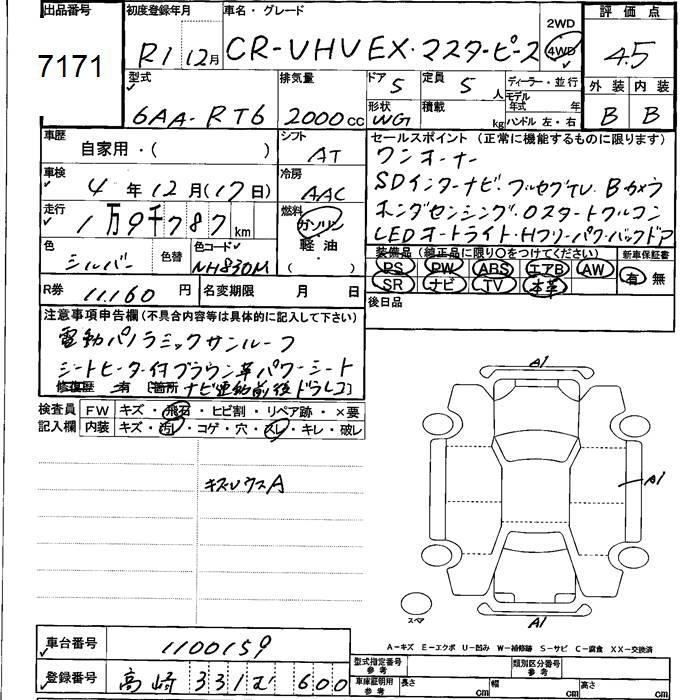 出品番号 初度登録年月 車名・グレード 2WD 評価点
7171 R1 12月 CR-VHV EX・マスターピース 4WD 4.5
型式 排気量 ドア 5 定員 5人 ディーラー・並行 外装 内装
6AA-RT6 2000cc 形状 WG 積載 kg モデル年式 年 B B
ハンドル 左・右
車歴 自家用・( ) シフト AT セールスポイント (正常に機能するものに限ります)
ワンオーナー
車検 4年12月(17日) 冷房 AAC SDインターナビ・フルセグTV Bカメラ
走行 1万9千787km 燃料 ガソリン ホンダセンシング・Oスタートフルコン
軽油 ( ) LEDオートライト・Hフリーパワーバックドア
色 シルバー 色替 色コード NH830M 装備品 (純正品に限り○をつけてください) 新車保証書
PS PW ABS エアB AW 有 無
R券 11,160円 名変期限 月 日 SR ナビ TV 本革
後日品
注意事項申告欄 (不具合内容等は具体的に記入して下さい)
電動パノラミックサンルーフ
シートヒーター付ブラウン革パワーシート
修復歴 有 [箇所 ナビ連動前後ドラレコ]
検査員 FW キズ・飛石・ヒビ割・リペア跡・×要
記入欄 内装 キズ・汚レ・コゲ・穴・スレ・キレ・破レ
キズUウスA
A1
A1
A1
スペア
A-キズ E-エクボ U-凹み W-補修跡 S-サビ C-腐食 XX-交換済
車台番号 1100159
型式指定番号 参考 類別区分番号 参考
登録番号 高崎 331 む 600
車庫証明用 参考 長さ cm 幅 cm 高さ cm